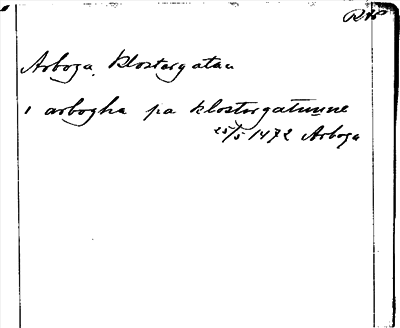 Arboga, Klostergatan
i arbogha pa klostergatunne
25/5 1472 Arboga